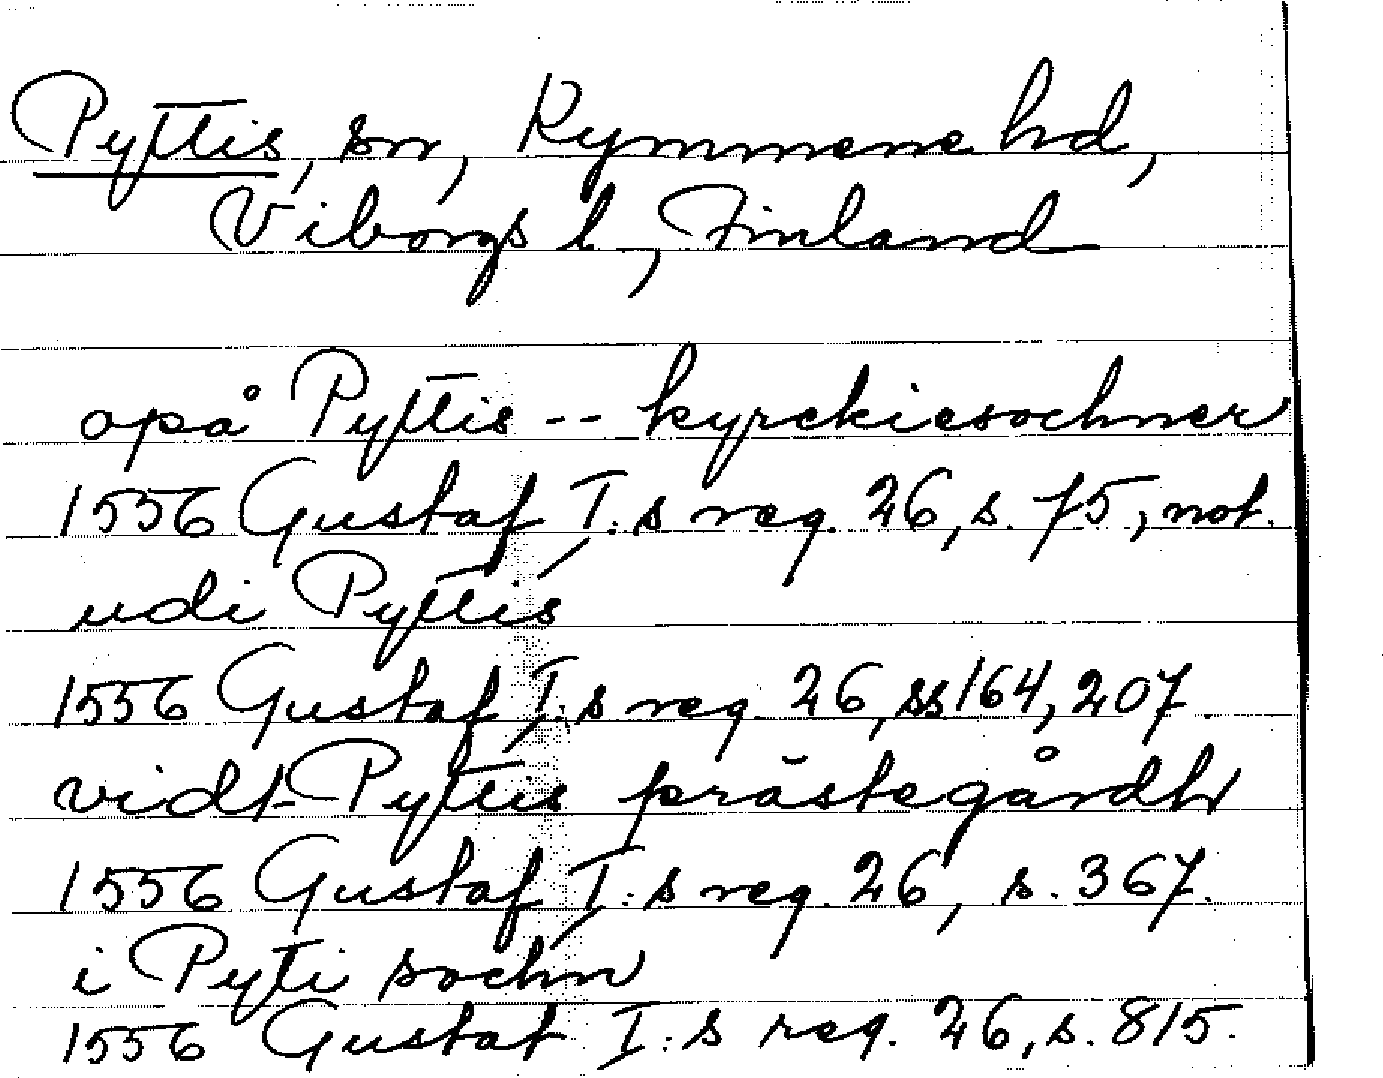 Pyttis, sn, Kymmene hd,
Viborgs l., Finland
opå Pyttis -- kyrckiesochner
1556 Gustaf I:s reg. 26, s. 75, not.
udi Pyttis
1556 Gustaf I:s reg. 26, ss 164, 207
vidt Pyttis prästegårdh
1556 Gustaf I:s reg. 26, s. 367.
i Pyti sochn
1556 Gustaf I:s reg. 26, s. 815.